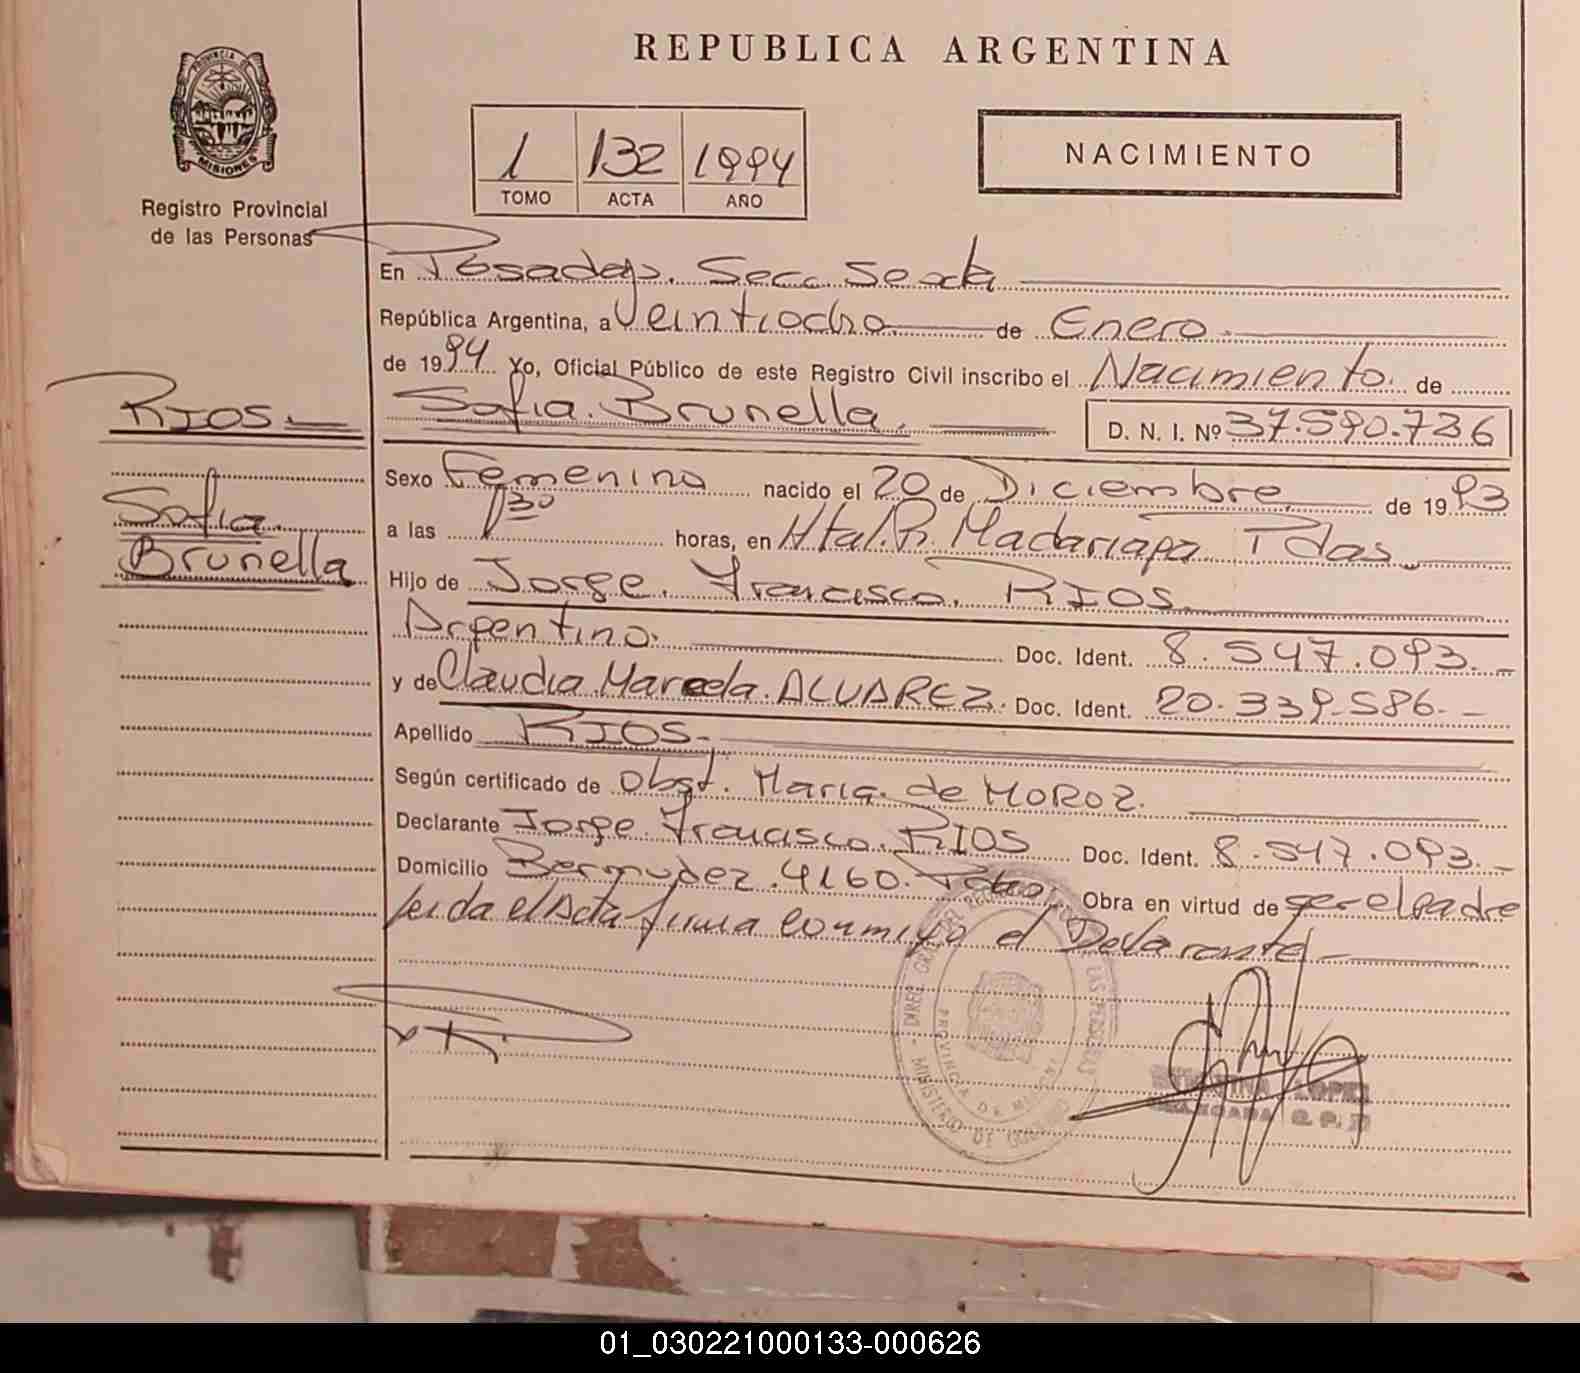 REPUBLICA ARGENTINA
PROVINCIA DE
MISIONES
Registro Provincial
de las Personas
1 132 1994
TOMO ACTA AÑO
NACIMIENTO
En Posadas. Secc. Sexta
República Argentina, a Veintiocho de Enero.
de 1994. Yo, Oficial Público de este Registro Civil inscribo el Nacimiento. de
RIOS.
Sofia. Brunella. D. N. I. Nº 37.590.736
Sexo Femenino nacido el 20 de Diciembre. de 1993
Sofia.
Brunella
a las 1,30 horas, en Htal. R. Madariaga Pdas.
Hijo de Jorge. Francisco. RIOS.
Argentino. Doc. Ident. 8.547.093.-
y de Claudia. Marcela. ALVAREZ. Doc. Ident. 20.339.586.-
Apellido RIOS.-
Según certificado de Obst. Maria. de MOROZ.
Declarante Jorge. Francisco. RIOS Doc. Ident. 8.547.093.-
Domicilio Bermudez. 4160. Pdas. Obra en virtud de ser el padre
leida el Acta firma conmigo el Declarante-
LOPEZ